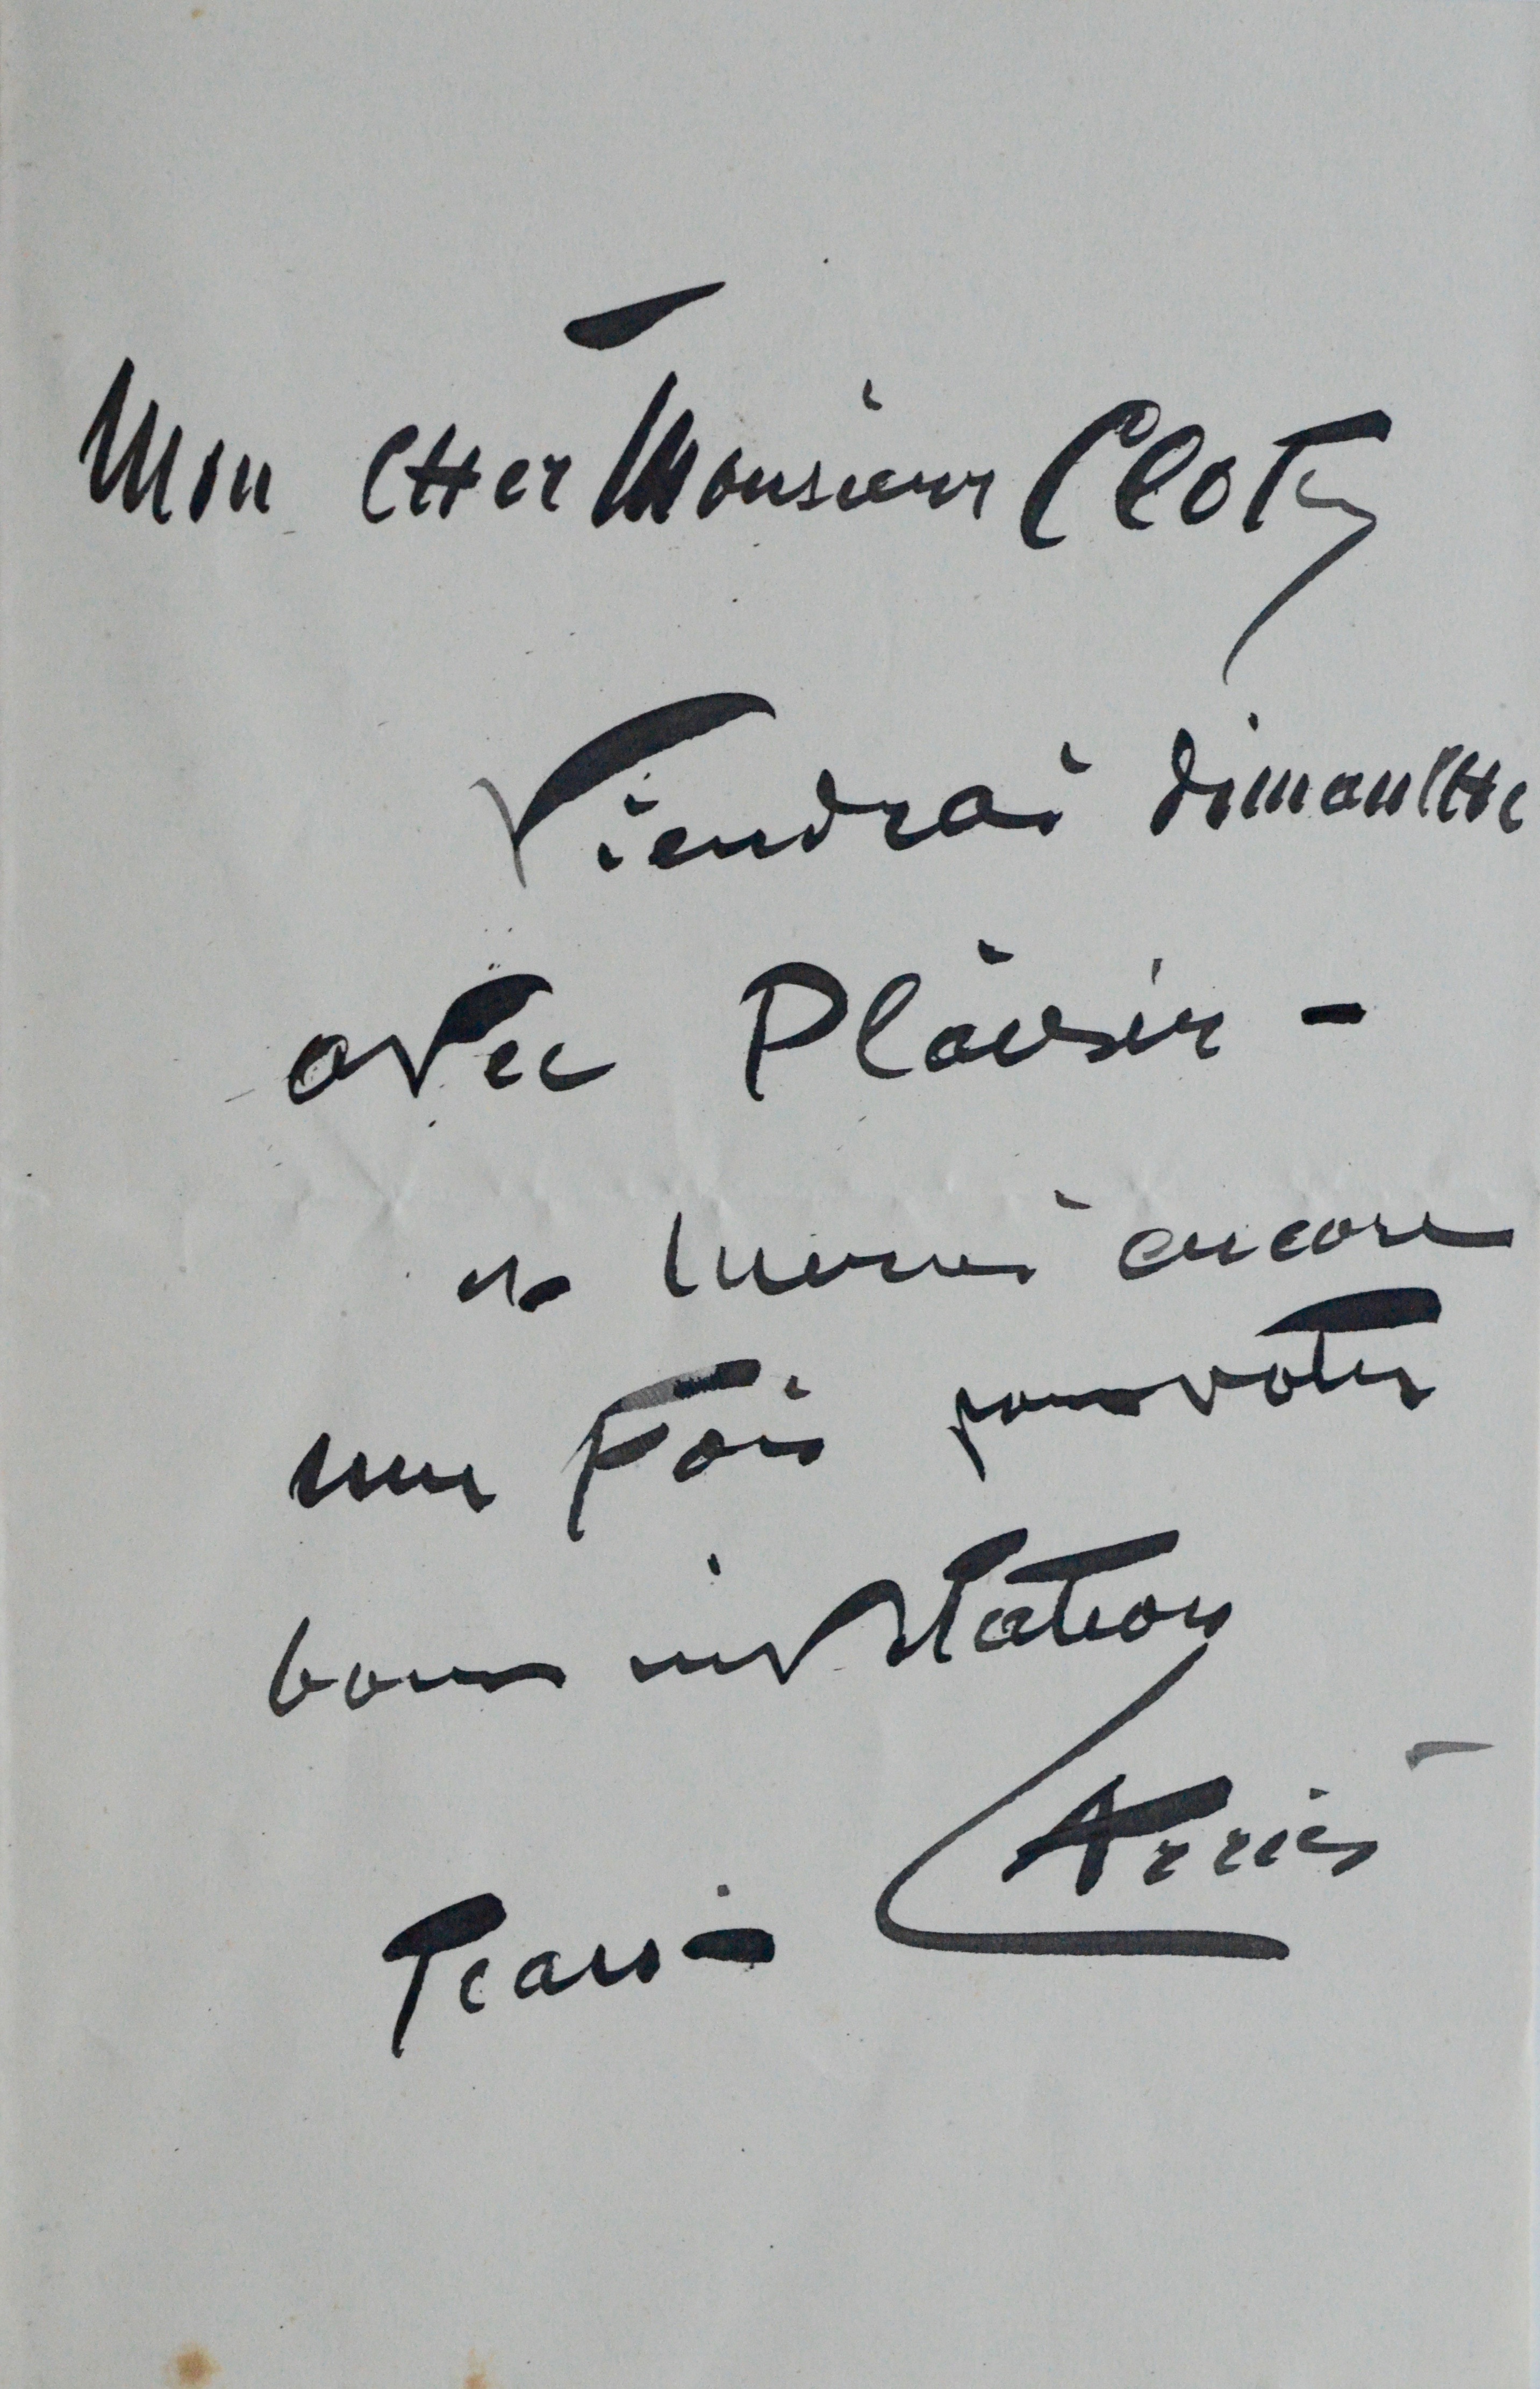 Mon cher Monsieur Cloty
Viendrai dimanche
avec Plaisir -
et merci encore
une Fois pour votre
bonne invitation
Jean - Arriès